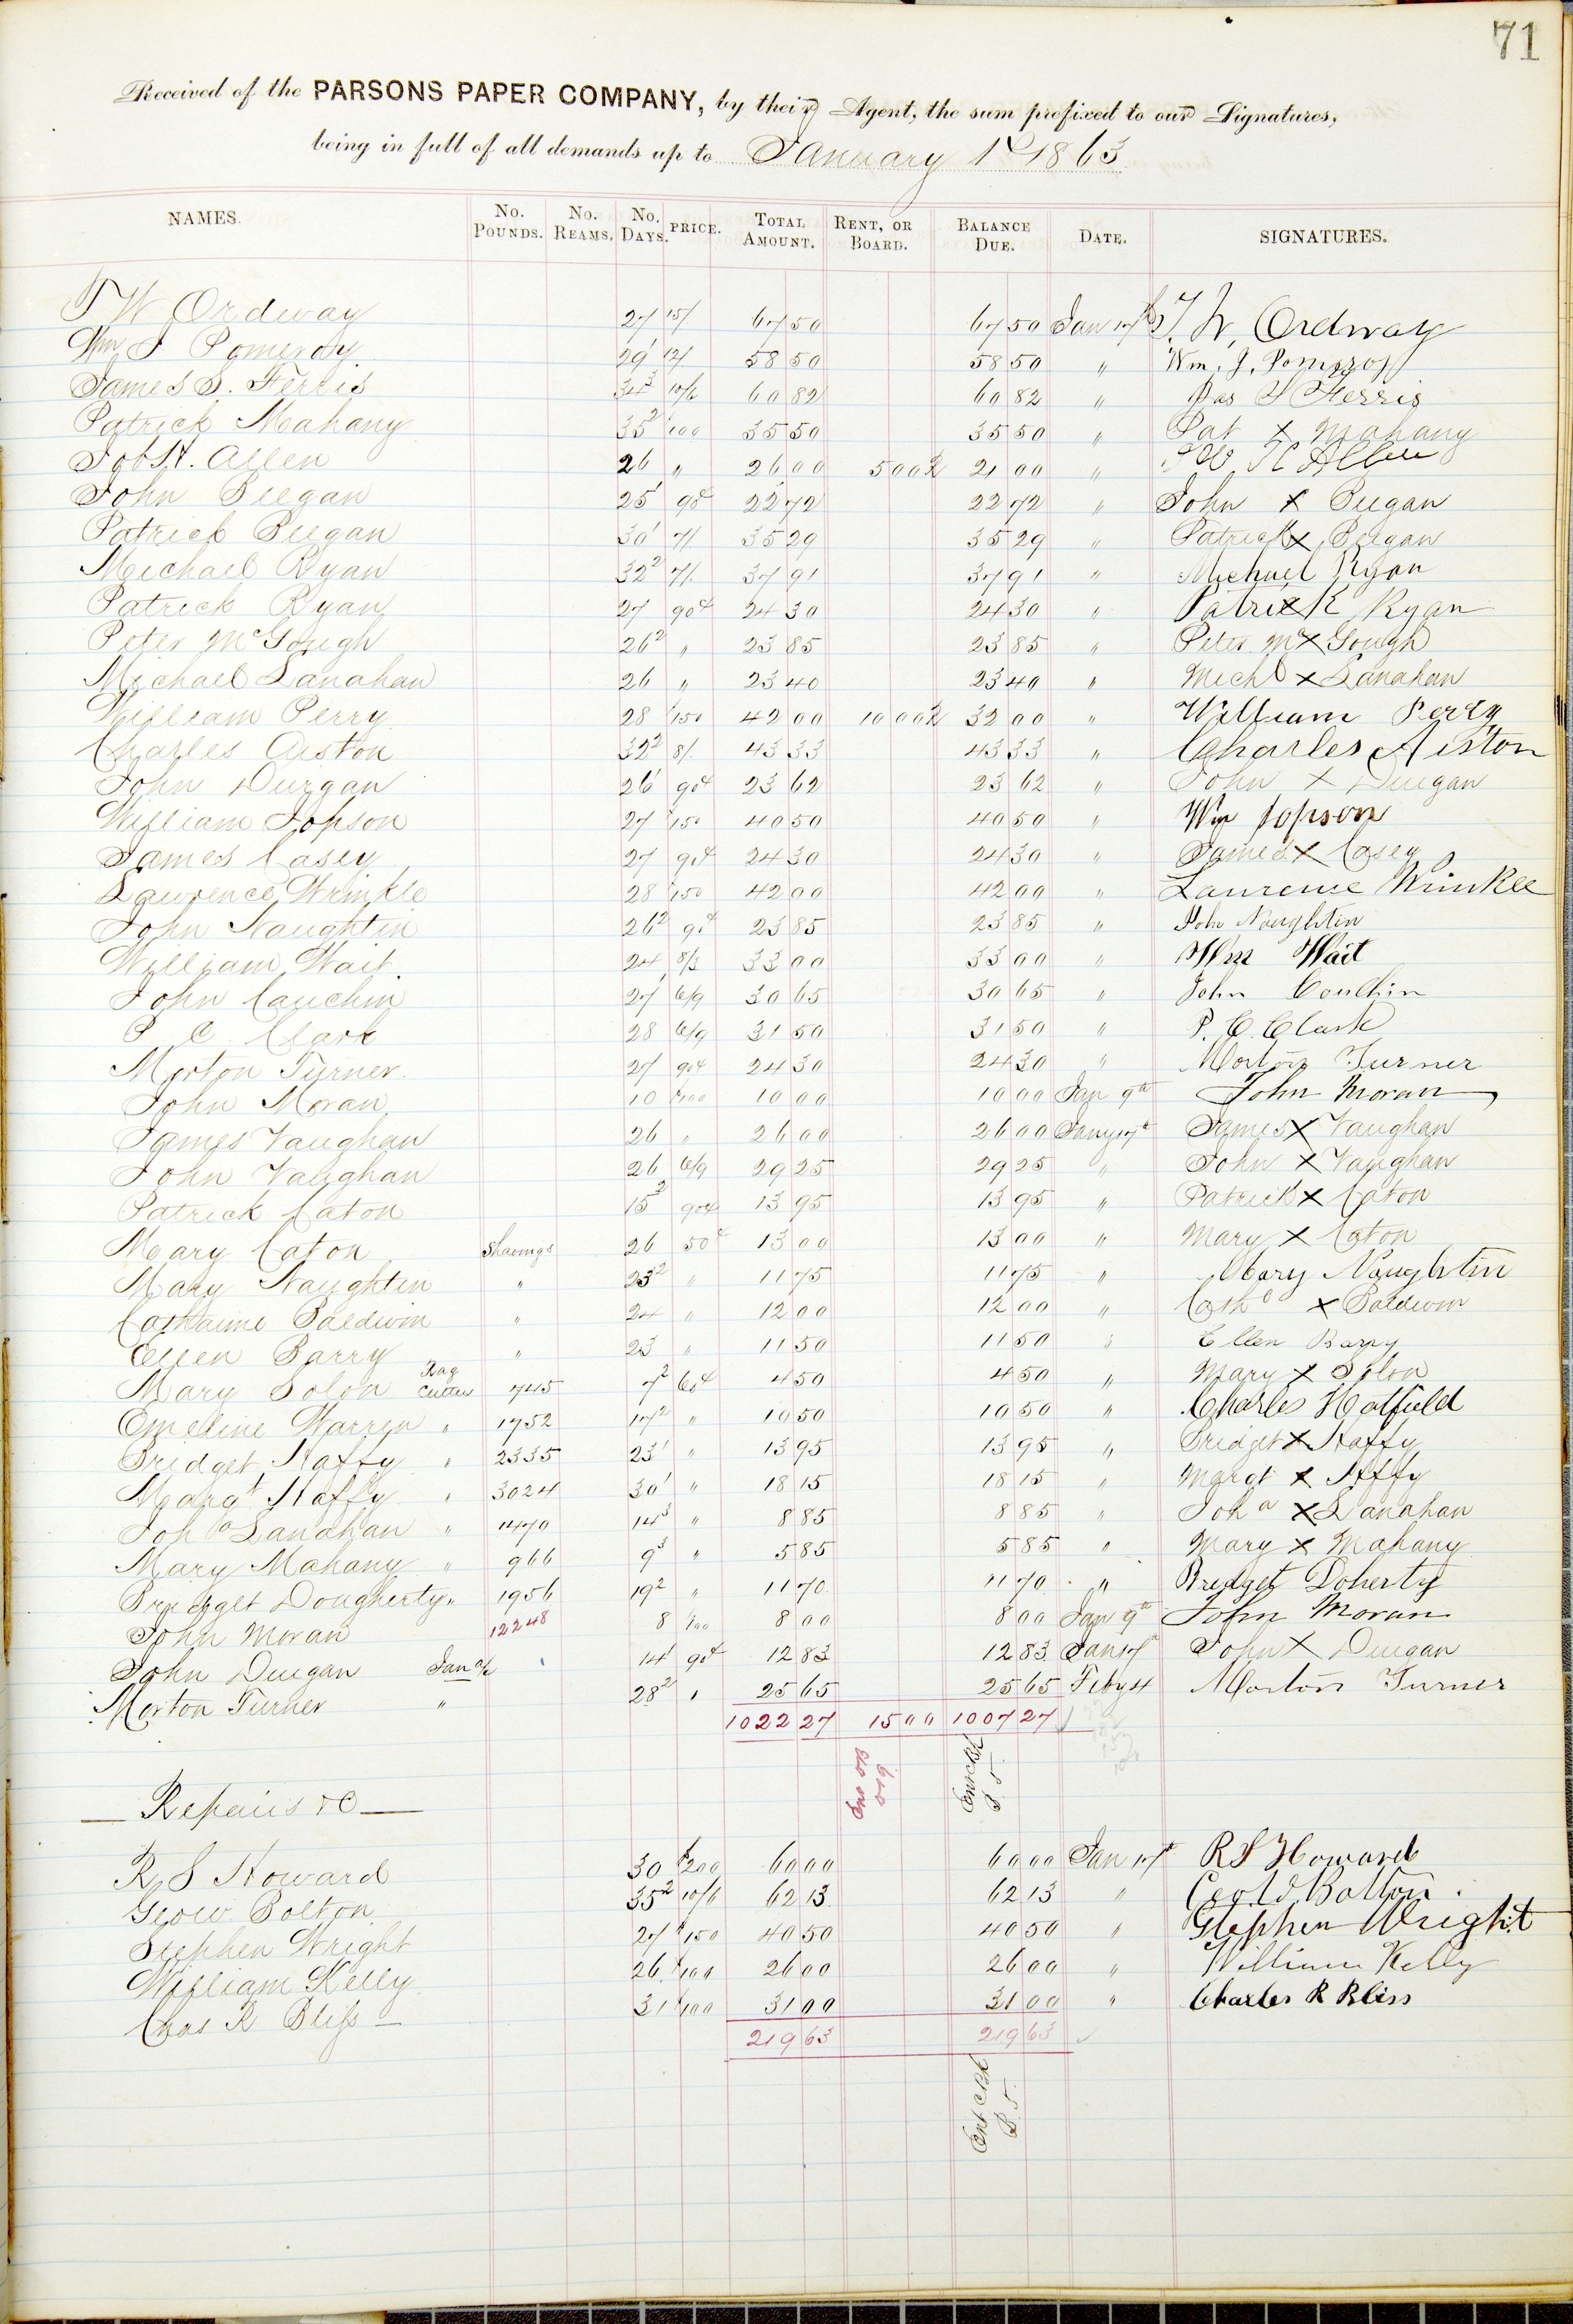 71
Received of the PARSONS PAPER COMPANY, by their Agent, the sum prefixed to our Signatures,
being in full of all demands up to January 1st 1863
NAMES. No. POUNDS. No. REAMS. No. DAYS. PRICE. TOTAL AMOUNT. RENT, OR BOARD. BALANCE DUE. DATE. SIGNATURES.
T W Ordway 27 15/ 67 50 67 50 Jan 17th T. W. Ordway
Wm J Pomeroy 29 1 12/ 58 50 58 50 " Wm. J. Pomeroy
James S. Ferris 34 3 10/6 60 82 60 82 " Jas S Ferris
Patrick Mahany 35 2 100 35 50 35 50 " Pat X Mahany
Job H. Allen 26 " 26 00 5 00 2 21 00 " Allen
John Beegan 25 1 90c 22 72 22 72 " John X Beegan
Patrick Beegan 30 1 7/ 35 29 35 29 " Patrick X Beegan
Michael Ryan 32 2 7/ 37 91 37 91 " Michael Ryan
Patrick Ryan 27 90c 24 30 24 30 " Patrick X Ryan
Peter McGough 26 2 " 23 85 23 85 " Peter Mc X Gough
Michael Lanahan 26 " 23 40 23 40 " Michl X Lanahan
William Perry 28 150 42 00 10 00 2 32 00 " William Perry
Charles Aiston 32 2 8/ 43 33 43 33 " Charles Aiston
John Durgan 26 1 90c 23 62 23 62 " John X Duegan
William Jopson 27 150 40 50 40 50 " Wm Jopson
James Casey 27 90c 24 30 24 30 " James X Casey
Lawrence Wrinkle 28 150 42 00 42 00 " Laurence Wrinkle
John Naughtin 26 2 90c 23 85 23 85 " John Naughtin
William Wait 24 8/3 33 00 33 00 " Wm Wait
John Cauchin 27 1 6/9 30 65 30 65 " John Couchin
P C Clark 28 6/9 31 50 31 50 " P. C. Clark
Morton Turner 27 90c 24 30 24 30 " Morton Turner
John Moran 10 100 10 00 10 00 Jan 9th John Moran
James Vaughan 26 " 26 00 26 00 Jany 17th James X Vaughan
John Vaughan 26 6/9 29 25 29 25 " John X Vaughan
Patrick Caton 15 2 90c 13 95 13 95 " Patrick X Caton
Mary Caton Shavings 26 50c 13 00 13 00 " Mary X Caton
Mary Naughtin " 23 2 " 11 75 11 75 " Mary Naughtin
Catharine Baldwin " 24 " 12 00 12 00 " Cathe X Baldwin
Ellen Barry " 23 " 11 50 11 50 " Ellen Barry
Mary Solon Rag Cutter 745 7 2 60c 4 50 4 50 " Mary X Solon
Emeline Warren " 1752 17 2 " 10 50 10 50 " Charles Hatfield
Bridget Haffy " 2335 23 1 " 13 95 13 95 " Bridget X Haffy
Margt Haffy " 3024 30 1 " 18 15 18 15 " Margt X Haffy
Joha Lanahan " 1470 14 3 " 8 85 8 85 " Joha X Lanahan
Mary Mahany " 966 9 3 " 5 85 5 85 " Mary X Mahany
Bridget Dougherty " 1956 19 2 " 11 70 11 70 " Bridget Doherty
John Moran 12248 8 100 8 00 8 00 Jan 9th John Moran
John Duegan Jan a/c 14 1 90c 12 83 12 83 Jan 17 John X Duegan
Morton Turner " 28 2 " 25 65 25 65 Feby 4 Morton Turner
1022 27 15 00 1007 27
Repairs &c
R S Howard 30 200 60 00 60 00 Jan 17th R S Howard
Geo W Bolton 35 2 10/6 62 13 62 13 " Geo W Bolton.
Stephen Wright 27 150 40 50 40 50 " Stephen Wright
William Kelly 26 100 26 00 26 00 " William Kelly
Chas R Bliss 31 100 31 00 31 00 " Charles R Bliss
219 63 219 63